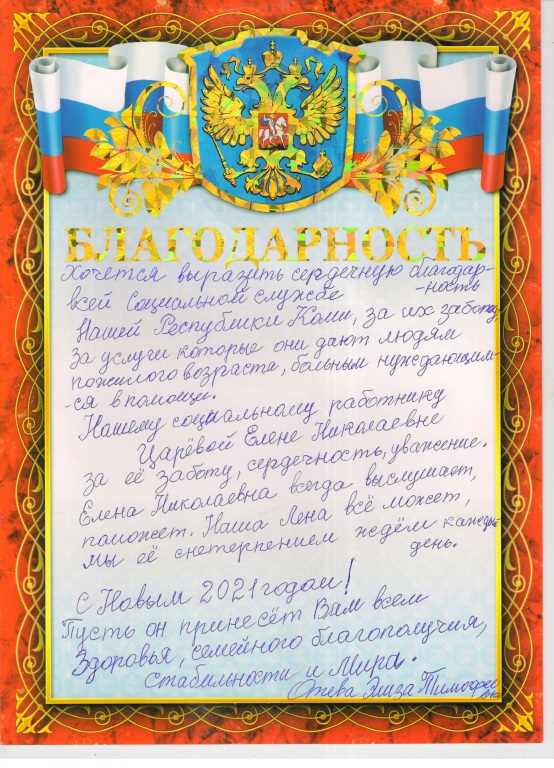 БЛАГОДАРНОСТЬ
Хочется выразить сердечную благодар-
всей Социальной службе -ность
Нашей Республики Коми, за их заботу,
за услуги которые они дают людям
пожилого возраста, больным нуждающим-
-ся в помощи.
Нашему социальному работнику
Царёвой Елене Николаевне
за её заботу, сердечность, уважение.
Елена Николаевна всегда выслушает,
поможет. Наша Лена всё может,
мы её снетерпением ждём каждый
день.
С Новым 2021 годом!
Пусть он принесёт Вам всем
Здоровья, семейного благополучия,
Стабильности и Мира.
Элиза Тимофее